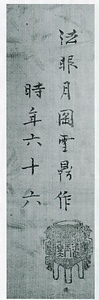 法眼月岡雪鼎作
時年六十六